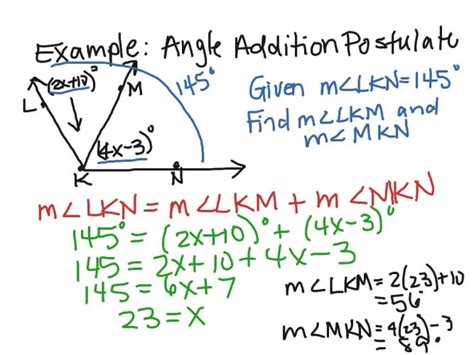 Example: Angle Addition Postulate
(2x+10)°
145°
L
M
(4x-3)°
K
N
Given m∠LKN=145°
Find m∠LKM and
m∠MKN
m∠LKN = m∠LKM + m∠MKN
145° = (2x+10)° + (4x-3)°
145 = 2x+10+4x-3
145 = 6x+7
23 = x
m∠LKM = 2(23)+10
= 56°
m∠MKN = 4(23)-3
= 89°